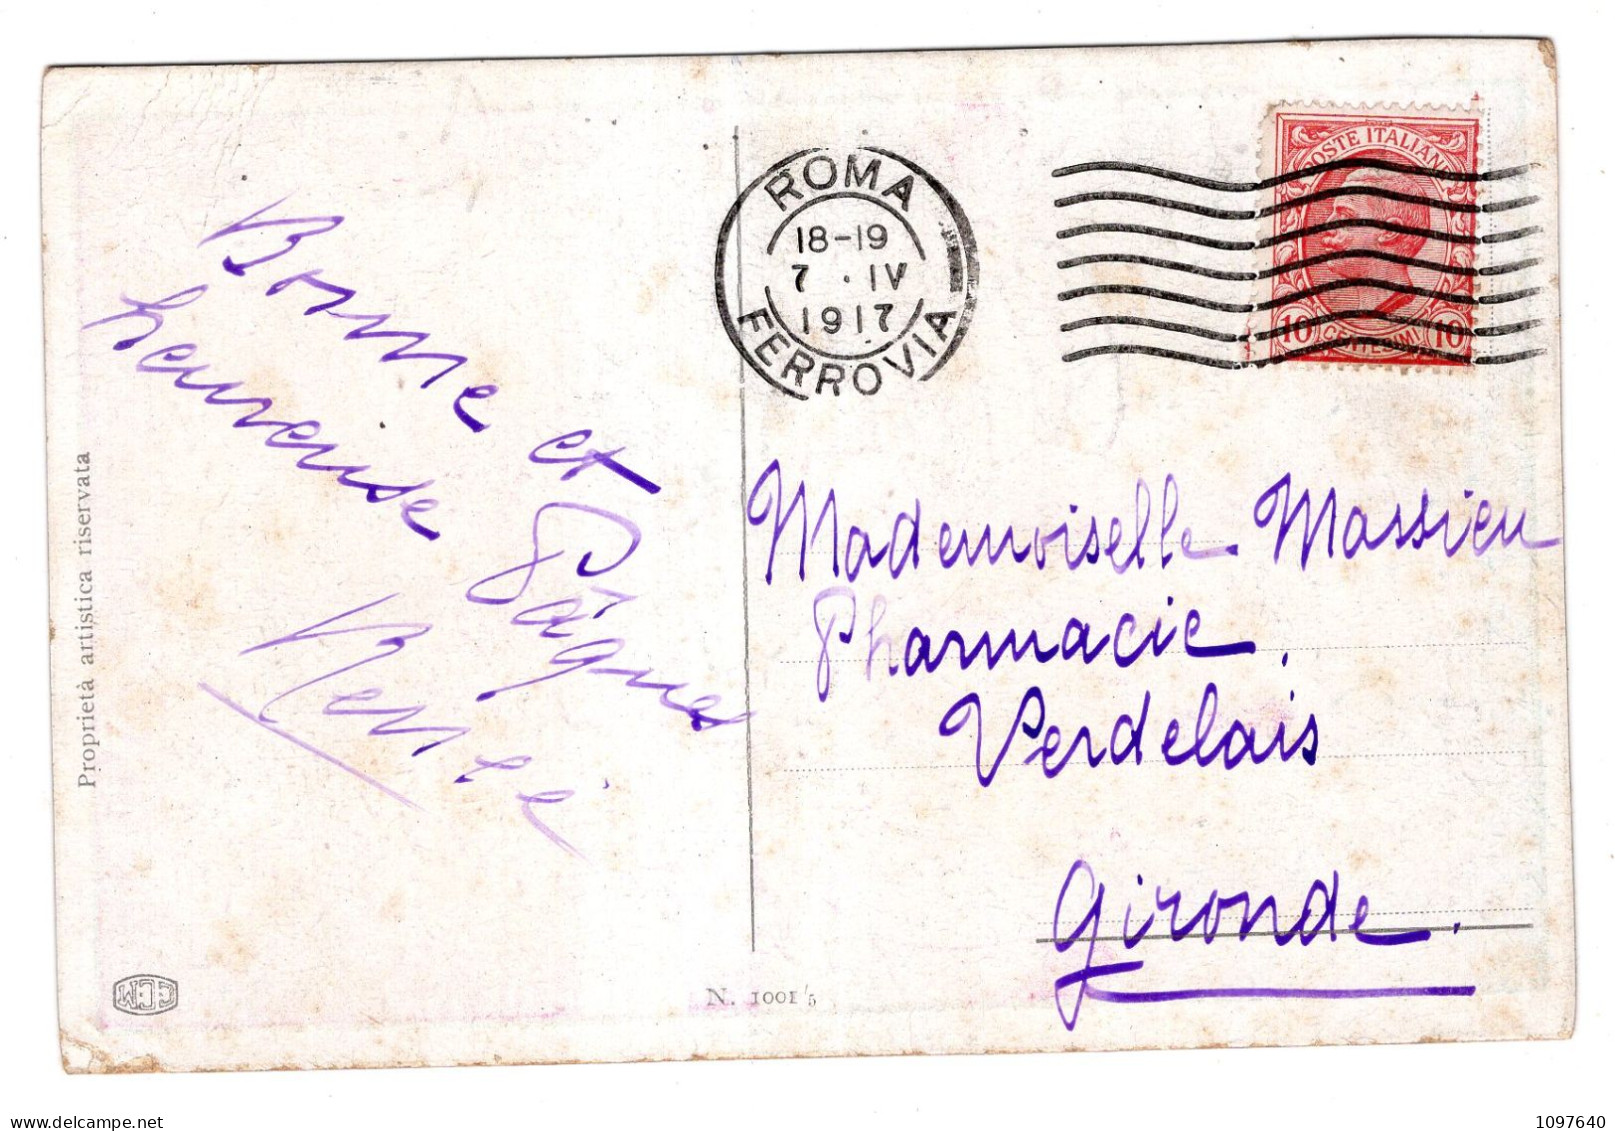 ROMA
18-19
7 . IV
1917
FERROVIA
POSTE ITALIANE
10 CENTESIMI 10
Bonne et
heureuse
Pâques
René
Mademoiselle Massieu
Pharmacie.
Verdelais
Gironde.
Proprietà artistica riservata
N. 1001/5
1097640